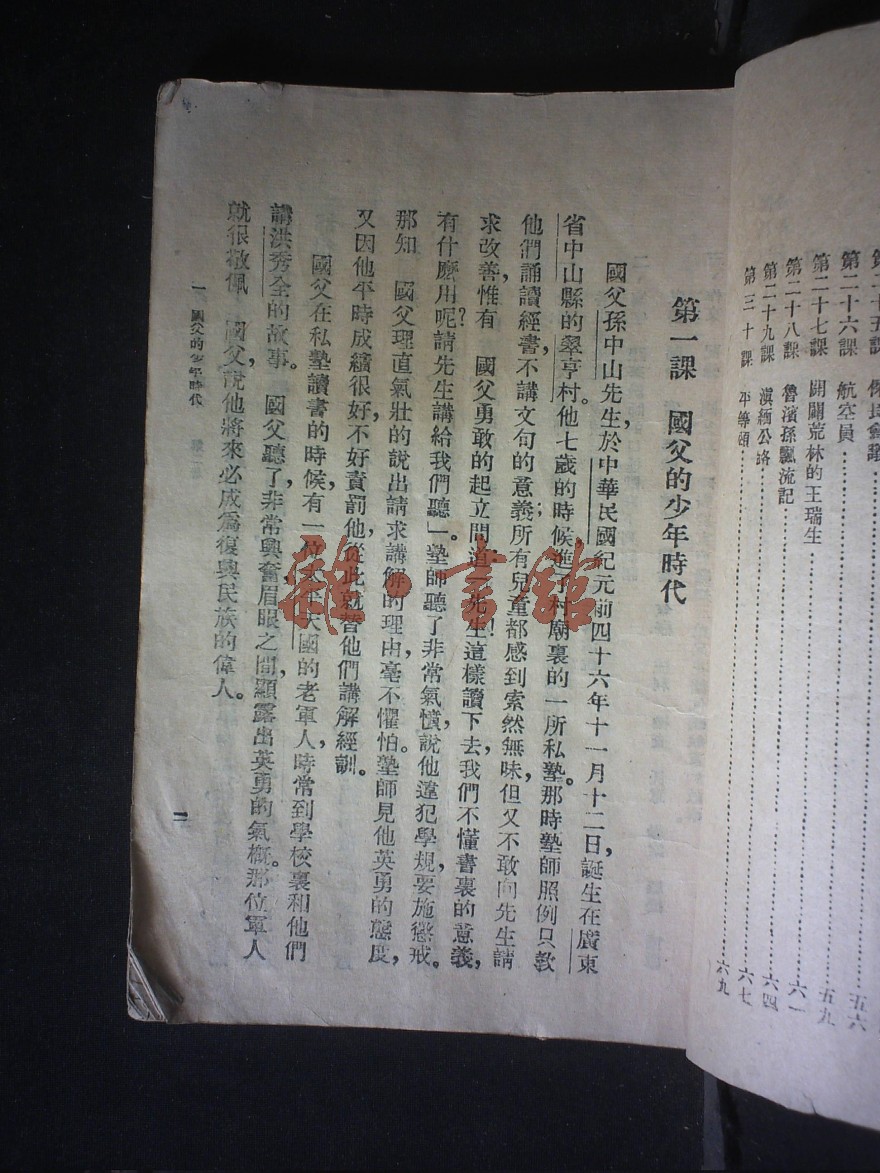 第二十六課 航空員……五六
第二十七課 開闢荒林的王瑞生……五九
第二十八課 魯濱孫飄流記……六一
第二十九課 滇緬公路……六四
第三十課 平等頌……六七
六九
第一課 國父的少年時代
國父孫中山先生,於中華民國紀元前四十六年十一月十二日,誕生在廣東
省中山縣的翠亨村。他七歲的時候,進了村廟裏的一所私塾。那時塾師照例只教
他們誦讀經書,不講文句的意義;所有兒童都感到索然無味,但又不敢向先生請
求改善,惟有 國父勇敢的起立問道「先生!這樣讀下去,我們不懂書裏的意義,
有什麼用呢?請先生講給我們聽」。塾師聽了非常氣憤,說他違犯學規,要施懲戒。
那知 國父理直氣壯的說出請求講解的理由,毫不懼怕。塾師見他英勇的態度,
又因他平時成績很好,不好責罰他,從此就替他們講解經訓。
國父在私塾讀書的時候,有一位太平天國的老軍人,時常到學校裏和他們
講洪秀全的故事。 國父聽了,非常興奮,眉眼之間,顯露出英勇的氣概。那位軍人
就很敬佩 國父,說他將來必成爲復興民族的偉人。
一 國父的少年時代
一
雜·書館